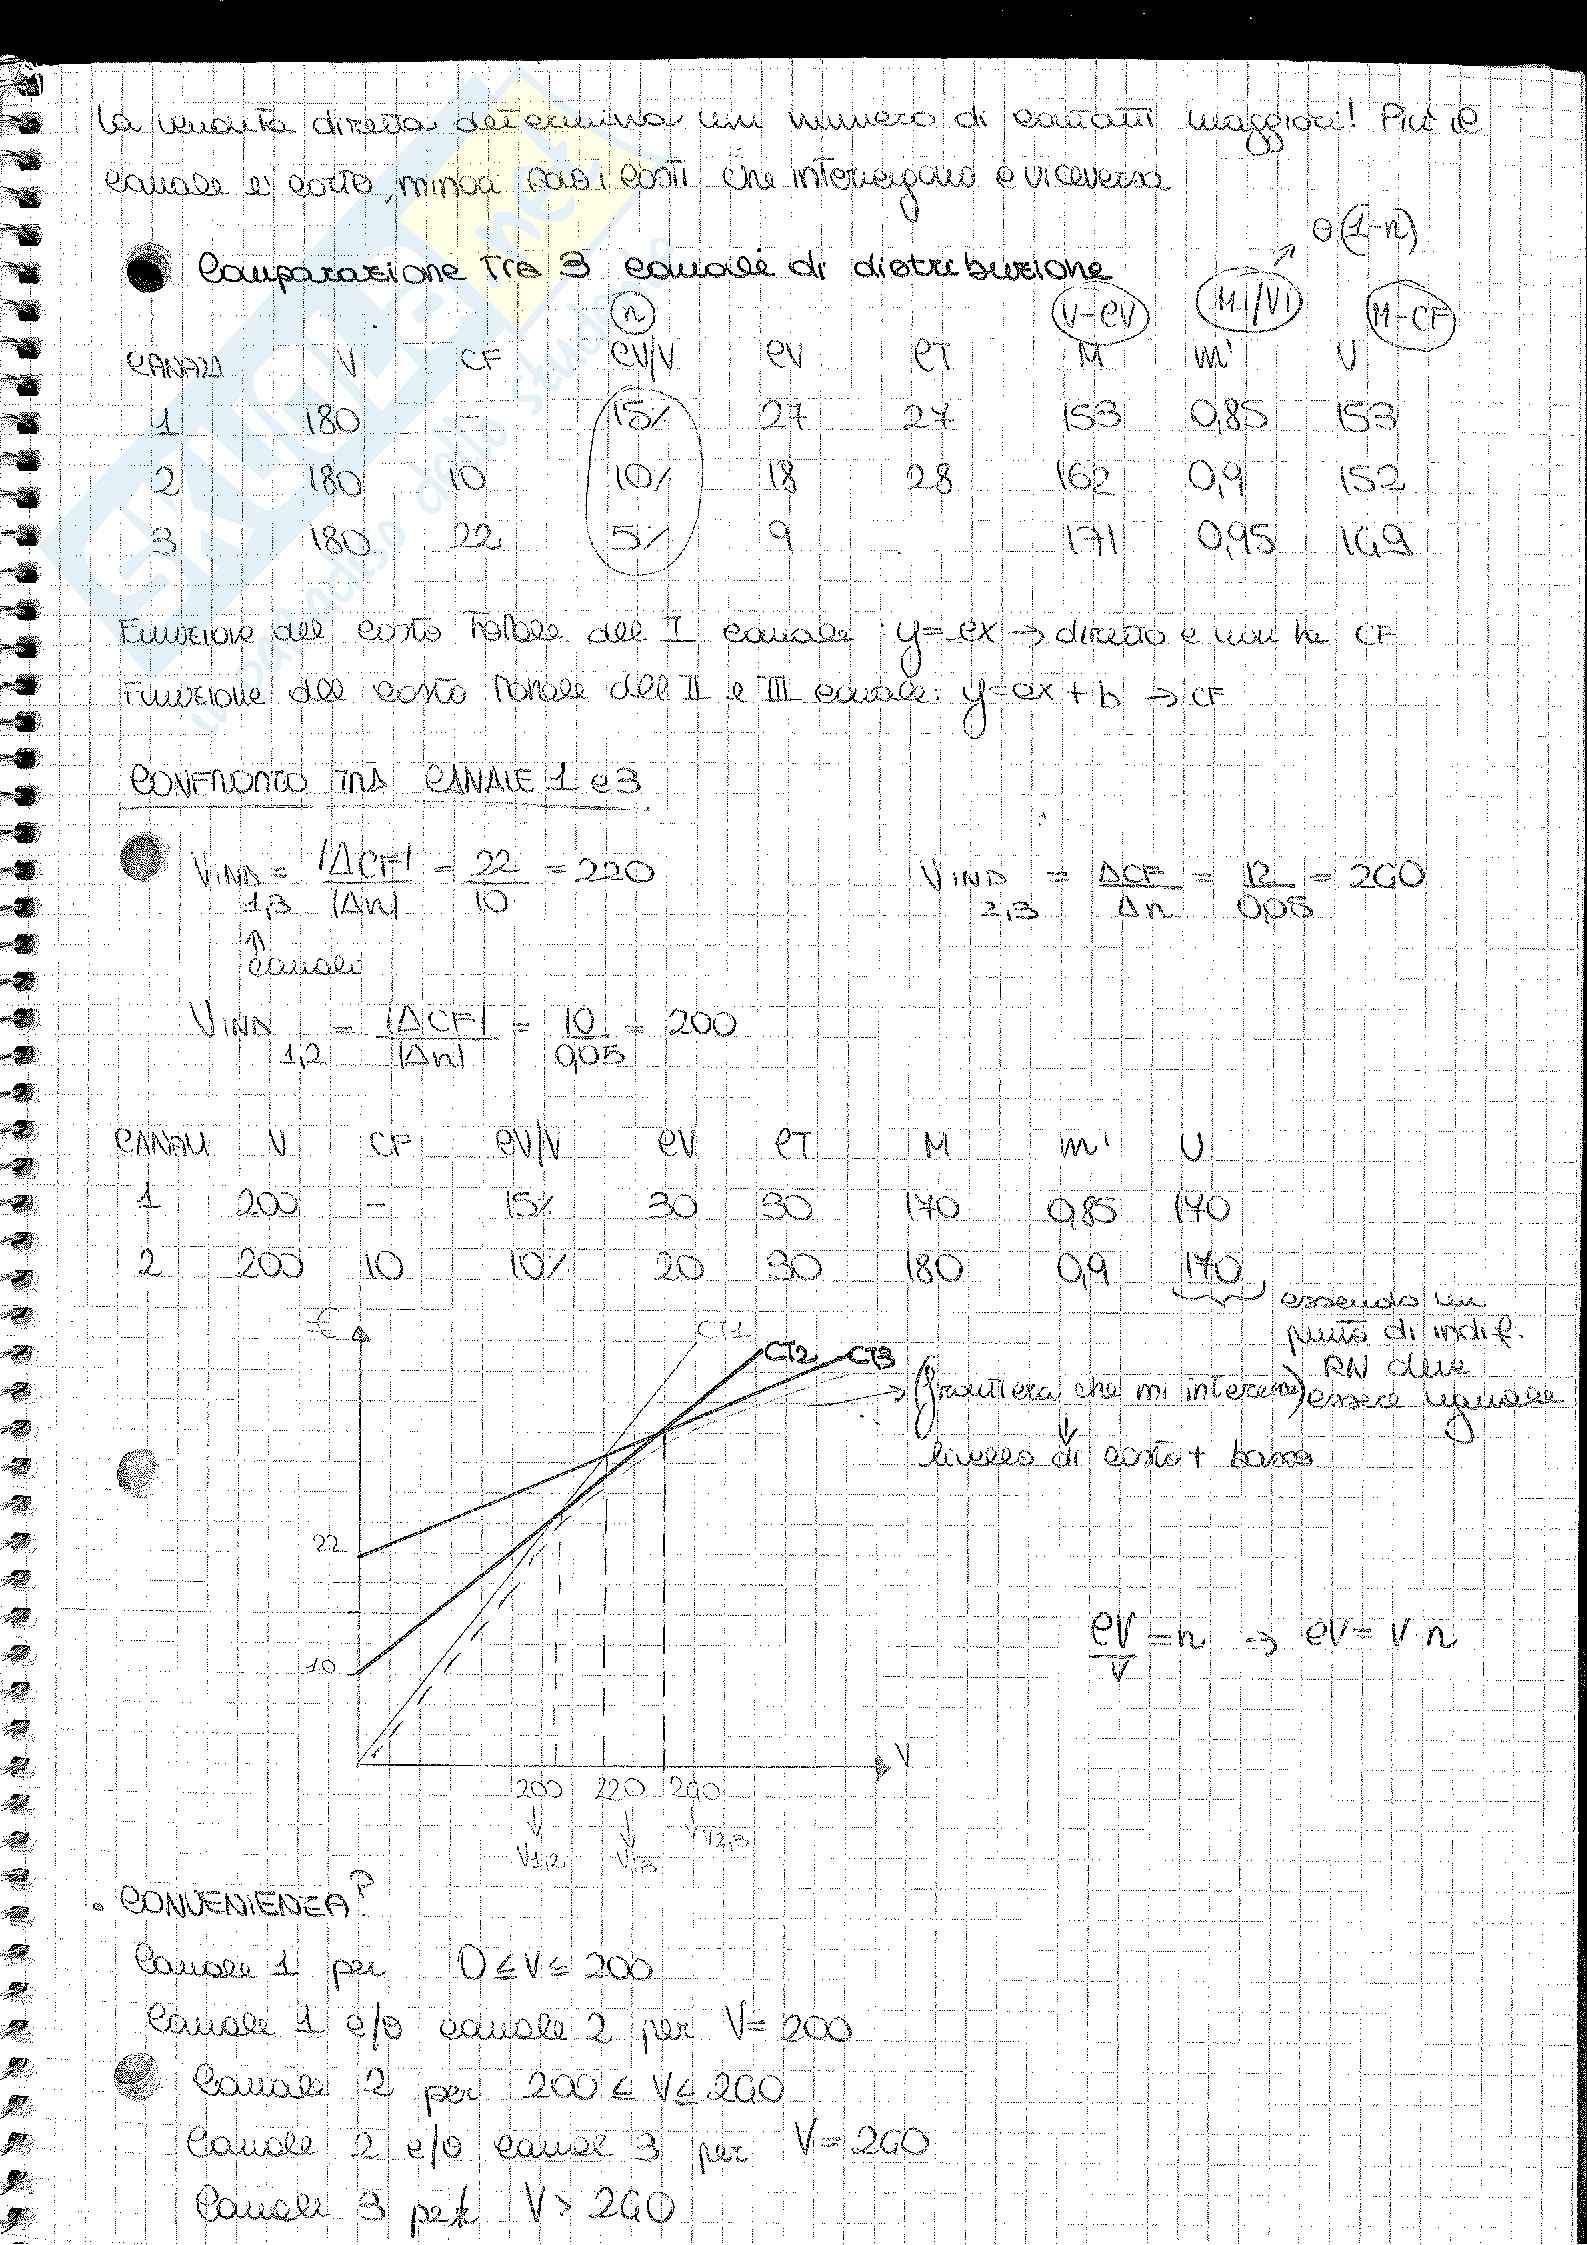 La vendita diretta determina un numero di contatti maggiori! Più il
canale è corto, minori sono i costi che intervengono e viceversa
Comparazione tra 3 canali di distribuzione
θ(1-n)
n V-CV Mi/Vi M-CF
CANALI V CF CV/V CV CT M m' U
1 180 - 15% 27 27 153 0,85 153
2 180 10 10% 18 28 162 0,9 152
3 180 22 5% 9 171 0,95 149
Funzione del costo totale del I canale: y=ax → diretto e non ha CF
Funzione del costo totale del II e III canale: y=ax + b → CF
CONFRONTO TRA CANALE 1 e 3
VIND 1,3 = |ΔCF| / |Δn| = 22 / 10 = 220
VIND 2,3 = ΔCF / Δn = 12 / 0,05 = 240
↑
canali
VIND 1,2 = |ΔCF| / |Δn| = 10 / 0,05 = 200
CANALI V CF CV/V CV CT M m' U
1 200 - 15% 30 30 170 0,85 170
2 200 10 10% 20 30 180 0,9 170
essendo un
punto di indif.
RN deve
essere uguale
€ CT1 CT2 CT3
→ (frontiera che mi interessa)
↓
livello di costo + basso
22
10
CV/V = n → CV = V·n
V
200 220 240
V1,2 V1,3 V2,3
• CONVENIENZA?
Canale 1 per 0 ≤ V ≤ 200
Canale 1 e/o canale 2 per V = 200
Canale 2 per 200 ≤ V ≤ 240
Canale 2 e/o canal 3 per V = 240
Canale 3 per V > 240